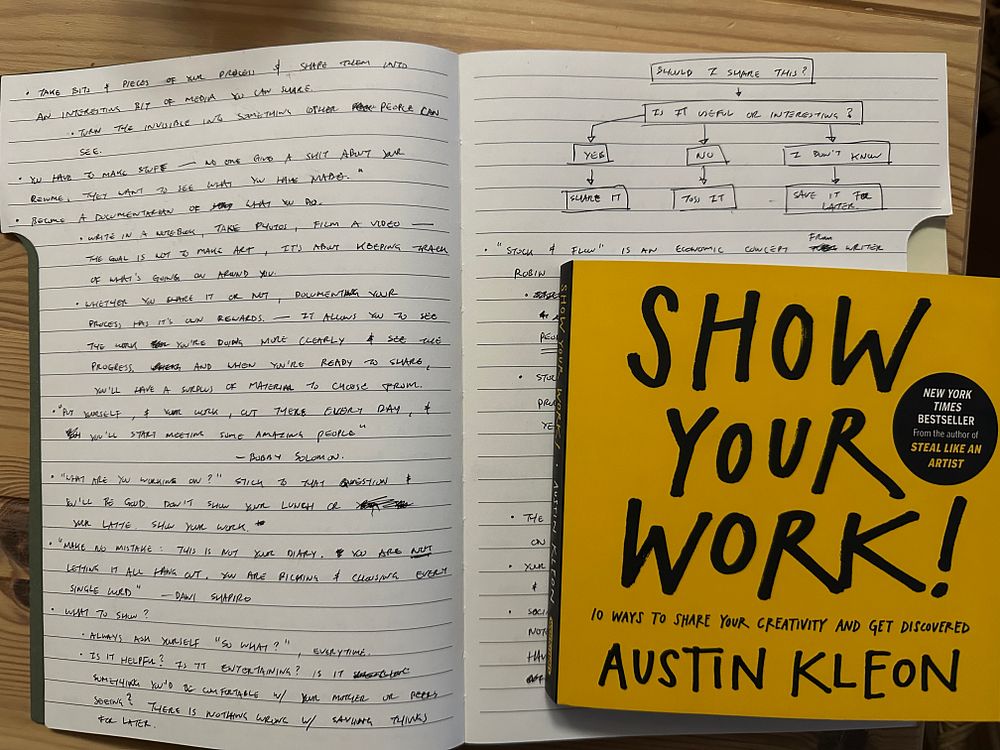 • TAKE BITS & PIECES OF YOUR PROCESS & SHAPE THEM INTO
AN INTERESTING BIT OF MEDIA YOU CAN SHARE.
• TURN THE INVISIBLE INTO SOMETHING OTHER PEOPLE CAN
SEE.
• YOU HAVE TO MAKE STUFF — NO ONE GIVES A SHIT ABOUT YOUR
RESUME, THEY WANT TO SEE WHAT YOU HAVE MADE."
• BECOME A DOCUMENTARIAN OF WHAT YOU DO.
• WRITE IN A NOTEBOOK, TAKE PHOTOS, FILM A VIDEO —
THE GOAL IS NOT TO MAKE ART, IT'S ABOUT KEEPING TRACK
OF WHAT'S GOING ON AROUND YOU.
• WHETHER YOU SHARE IT OR NOT, DOCUMENTING YOUR
PROCESS HAS IT'S OWN REWARDS. — IT ALLOWS YOU TO SEE
THE WORK YOU'RE DOING MORE CLEARLY & SEE THE
PROGRESS, AND WHEN YOU'RE READY TO SHARE,
YOU'LL HAVE A SURPLUS OF MATERIAL TO CHOOSE FROM.
• "PUT YOURSELF, & YOUR WORK, OUT THERE EVERY DAY, &
YOU'LL START MEETING SOME AMAZING PEOPLE"
— BOBBY SOLOMON.
• "WHAT ARE YOU WORKING ON?" STICK TO THAT QUESTION &
YOU'LL BE GOOD. DON'T SHOW YOUR LUNCH OR
YOUR LATTE. SHOW YOUR WORK.
• "MAKE NO MISTAKE: THIS IS NOT YOUR DIARY. YOU ARE NOT
LETTING IT ALL HANG OUT. YOU ARE PICKING & CHOOSING EVERY
SINGLE WORD" — DANI SHAPIRO
• WHAT TO SHOW?
• ALWAYS ASK YOURSELF "SO WHAT?", EVERYTIME.
• IS IT HELPFUL? IS IT ENTERTAINING? IS IT
SOMETHING YOU'D BE COMFORTABLE W/ YOUR MOTHER OR PEERS
SEEING? THERE IS NOTHING WRONG W/ SAVING THINGS
FOR LATER.
SHOULD I SHARE THIS?
IS IT USEFUL OR INTERESTING?
YES NO I DON'T KNOW
SHARE IT TOSS IT SAVE IT FOR
LATER.
• "STOCK & FLOW" IS AN ECONOMIC CONCEPT FROM WRITER
ROBIN
• STOC
• THE
ON
• YOUR
&
• SOCI
NOT
HAV
SHOW YOUR WORK! · AUSTIN KLEON
SHOW
YOUR
WORK!
NEW YORK
TIMES
BESTSELLER
From the author of
STEAL LIKE AN
ARTIST
10 WAYS TO SHARE YOUR CREATIVITY AND GET DISCOVERED
AUSTIN KLEON